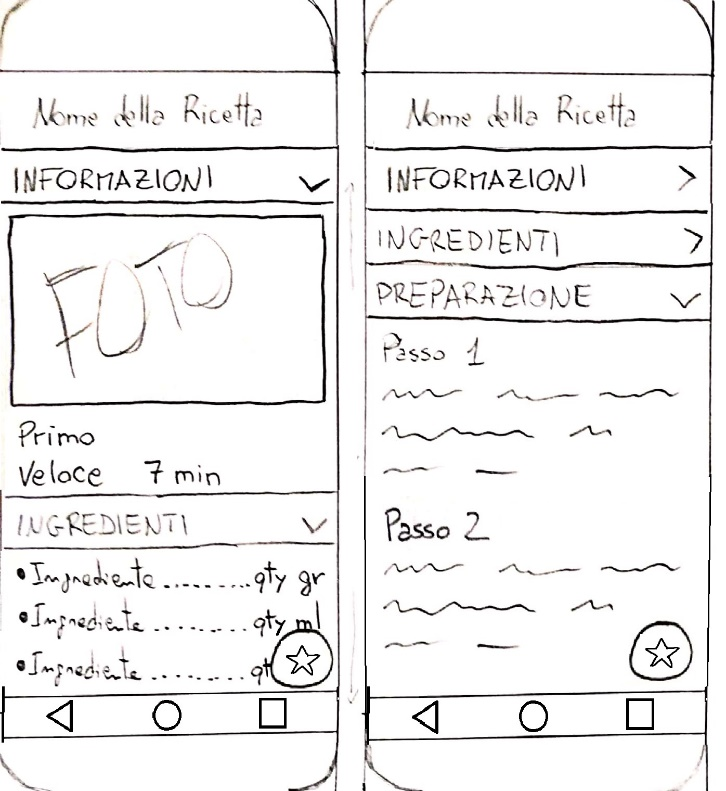 Nome della Ricetta
INFORMAZIONI
FOTO
Primo
Veloce 7 min
INGREDIENTI
•Ingrediente .........qty gr
•Ingrediente .........qty ml
•Ingrediente .........qt
Nome della Ricetta
INFORMAZIONI
INGREDIENTI
PREPARAZIONE
Passo 1
Passo 2